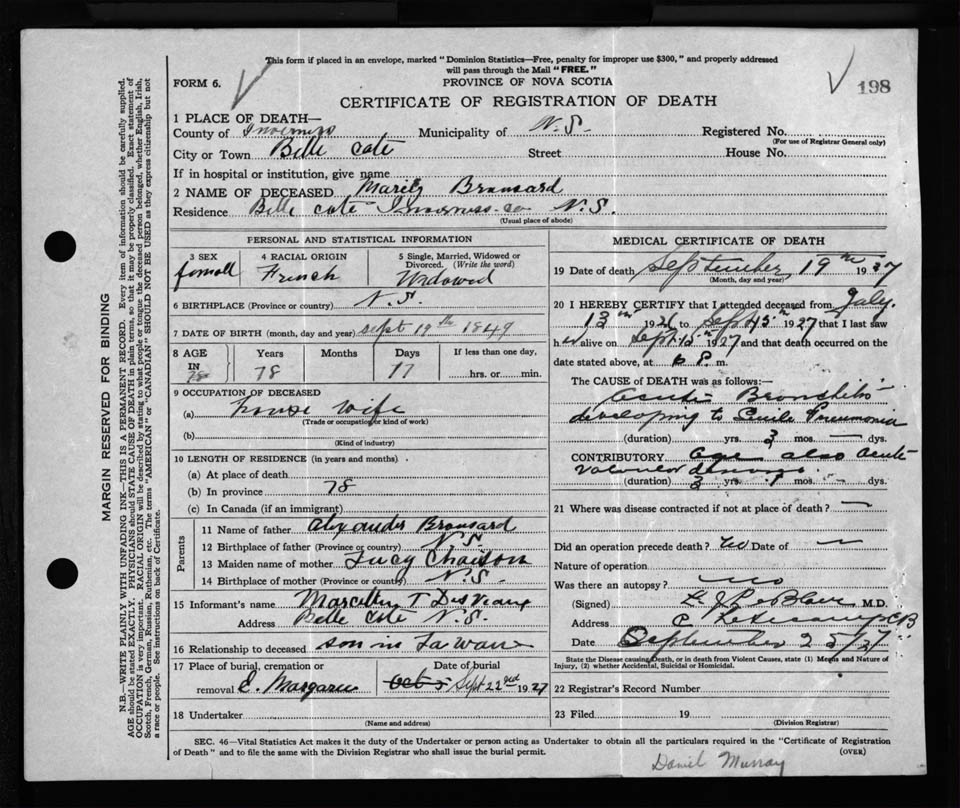 This form if placed in an envelope, marked "Dominion Statistics—Free, penalty for improper use $300," and properly addressed
will pass through the Mail "FREE."
FORM 6.
PROVINCE OF NOVA SCOTIA
198
CERTIFICATE OF REGISTRATION OF DEATH
1 PLACE OF DEATH—
County of Inverness Municipality of N.S. Registered No.
(For use of Registrar General only)
City or Town Belle Cote Street House No.
If in hospital or institution, give name
2 NAME OF DECEASED Brousard
Residence Belle Cote Inverness Co N.S.
(Usual place of abode)
PERSONAL AND STATISTICAL INFORMATION
3 SEX 4 RACIAL ORIGIN 5 Single, Married, Widowed or
Divorced. (Write the word)
French Widowed
6 BIRTHPLACE (Province or country) N.S.
7 DATE OF BIRTH (month, day and year) Sept 19th 1849
8 AGE Years Months Days If less than one day,
IN 78 78 17 hrs. or min.
9 OCCUPATION OF DECEASED
(a) house wife
(Trade or occupation or kind of work)
(b)
(Kind of industry)
10 LENGTH OF RESIDENCE (in years and months)
(a) At place of death
(b) In province 78
(c) In Canada (if an immigrant)
Parents
11 Name of father Alexander Brousard
12 Birthplace of father (Province or country) N.S
13 Maiden name of mother Lucy Chaison
14 Birthplace of mother (Province or country) N.S.
15 Informant's name T
Address Belle Cote N.S.
16 Relationship to deceased son in
17 Place of burial, cremation or Date of burial
removal E. Margaree Oct 5 Sept 22 1927
18 Undertaker
(Name and address)
MEDICAL CERTIFICATE OF DEATH
19 Date of death September 19th 1937
(Month, day and year)
20 I HEREBY CERTIFY that I attended deceased from July
13th 1926 to Sept 15th 1927 that I last saw
h er alive on Sept 15th 1927 and that death occurred on the
date stated above, at 6 P. m.
The CAUSE of DEATH was as follows:—
Acute Bronchitis
developing to Senile Pneumonia
(duration) yrs. 3 mos. — dys.
CONTRIBUTORY Age also Acute
Valvular
(duration) 3 yrs. mos. — dys.
21 Where was disease contracted if not at place of death? —
Did an operation precede death? no Date of —
Nature of operation
Was there an autopsy? no
(Signed) M.D.
Address
Date September 25/27
State the Disease causing Death, or in death from Violent Causes, state (1) Means and Nature of
Injury, (2) whether Accidental, Suicidal or Homicidal.
22 Registrar's Record Number
23 Filed 19
(Division Registrar)
SEC. 46—Vital Statistics Act makes it the duty of the Undertaker or person acting as Undertaker to obtain all the particulars required in the "Certificate of Registration
of Death" and to file the same with the Division Registrar who shall issue the burial permit. (OVER)
Daniel Murray
MARGIN RESERVED FOR BINDING
N.B.—WRITE PLAINLY WITH UNFADING INK—THIS IS A PERMANENT RECORD. Every item of information should be carefully supplied.
AGE should be stated EXACTLY. PHYSICIANS should STATE CAUSE OF DEATH in plain terms, so that it may be properly classified. Exact statement of
OCCUPATION is very important. RACIAL ORIGIN will be described by stating to what people or tongue the deceased person belonged, whether English, Irish,
Scotch, French, German, Russian, Ruthenian, etc. The terms "AMERICAN" or "CANADIAN" SHOULD NOT BE USED as they express citizenship but not
a race or people. See instructions on back of Certificate.